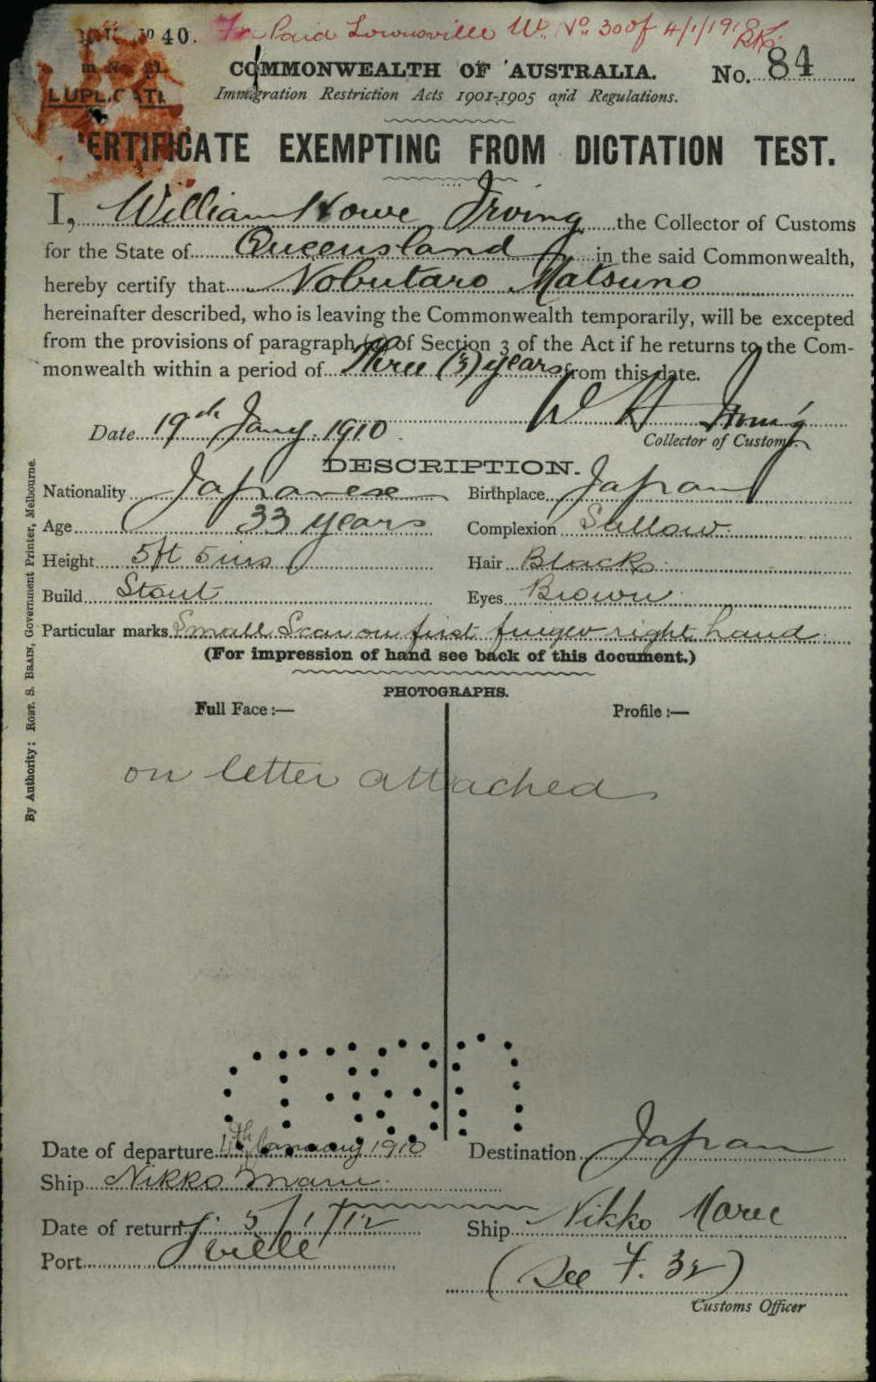 40. Paid Townsville No 30 of 4/1/19
COMMONWEALTH OF AUSTRALIA. No. 84
DUPLICATE
Immigration Restriction Acts 1901-1905 and Regulations.
CERTIFICATE EXEMPTING FROM DICTATION TEST.
I, William Howe Irving the Collector of Customs
for the State of Queensland in the said Commonwealth,
hereby certify that Nobutaro Matsuno
hereinafter described, who is leaving the Commonwealth temporarily, will be excepted
from the provisions of paragraph (a) of Section 3 of the Act if he returns to the Com-
monwealth within a period of Three (3) years from this date.
Date 19th Jany. 1910 W H Irving
Collector of Customs.
DESCRIPTION.
Nationality Japanese Birthplace Japan
Age 33 years Complexion Sallow
Height 5ft 5 ins Hair Black
Build Stout Eyes Brown
Particular marks Small Scar on first finger right hand
(For impression of hand see back of this document.)
PHOTOGRAPHS.
Full Face :— Profile :—
on letter attached
Date of departure 4th January 1910 Destination Japan
Ship Nikko Maru
Date of return 5/1/12 Ship Nikko Maru
Port Tville
(See F. 32)
Customs Officer
By Authority; ROBT. S. BRAIN, Government Printer, Melbourne.